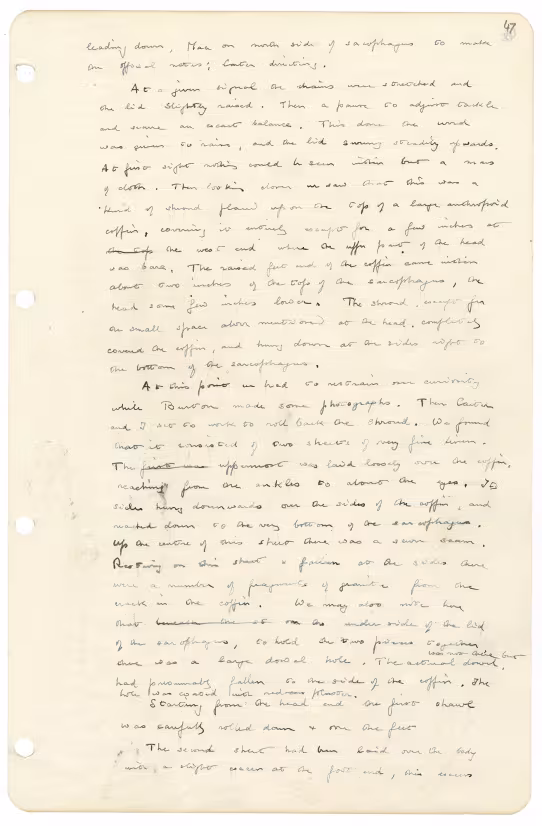 47
leading down, Mace on north side of sarcophagus to make
an official notes; Carter directing.
At a given signal the chains were stretched and
the lid slightly raised. Then a pause to adjust tackle
and secure an exact balance. This done the word
was given to raise, and the lid swung steadily upwards.
At first sight nothing could be seen within but a mass
of cloth. Then looking down we saw that this was a
kind of shroud placed upon the top of a large anthropoid
coffin, covering it entirely except for a few inches at
the top the west end where the upper part of the head
was bare. The raised foot end of the coffin came within
about two inches of the top of the sarcophagus, the
head some few inches lower. The shroud, except for
the small space above mentioned at the head, completely
covered the coffin, and hung down at the sides right to
the bottom of the sarcophagus.
At this point we had to restrain our curiosity
while Burton made some photographs. Then Carter
and I set to work to roll back the shroud. We found
that it consisted of two sheets of very fine linen.
The first was uppermost was laid loosely over the coffin,
reaching from the ankles to about the eyes. Its
sides hung downwards over the sides of the coffin, and
reached down to the very bottom of the sarcophagus.
Up the centre of this sheet there was a sewn seam.
Resting on this sheet & fallen at the sides there
were a number of fragments of granite from the
crack in the coffin. We may also note here
that beneath the at on the under side of the lid
of the sarcophagus, to hold the two pieces together
there was a large dowel hole. The actual dowel
was not there but
had presumably fallen to the side of the coffin. The
hole was coated with plaster.
Starting from the head end the first shawl
was carefully rolled down & over the feet
The second sheet had been laid over the body
with a slight excess at the foot end, this excess